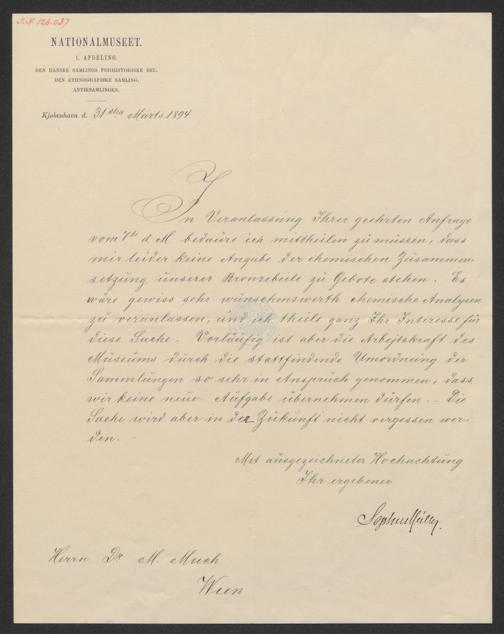 I.N. 126.037
NATIONALMUSEET.
1. AFDELING.
DEN DANSKE SAMLINGS FORHISTORISKE DEL,
DEN ETHNOGRAFISKE SAMLING,
ANTIKSAMLINGEN.
Kjøbenhavn d. 31ten Marts 1894
In Veranlassung Ihrer geehrten Anfrage
vom 7te d M. bedaure ich mittheilen zu müssen, dass
mir leider keine Angabe der chemischen Zusammen-
setzung unserer Bronzebeile zu Gebote stehen. Es
wäre gewiss sehr wünschenswerth chemische Analysen
zu veranlassen, und ich theile ganz Ihr Interesse für
diese Sache. Vorläufig ist aber die Arbejtskraft des
Museums durch die stattfindende Umordnung der
Sammlungen so sehr in Anspruch genommen, dass
wir keine neue Aufgabe übernehmen dürfen. – Die
Sache wird aber in der Zukunft nicht vergessen wer-
den.
Mit ausgezeichneter Hochachtung
Ihr ergebener
Sophus Müller.
Herrn Dr M. Much
Wien